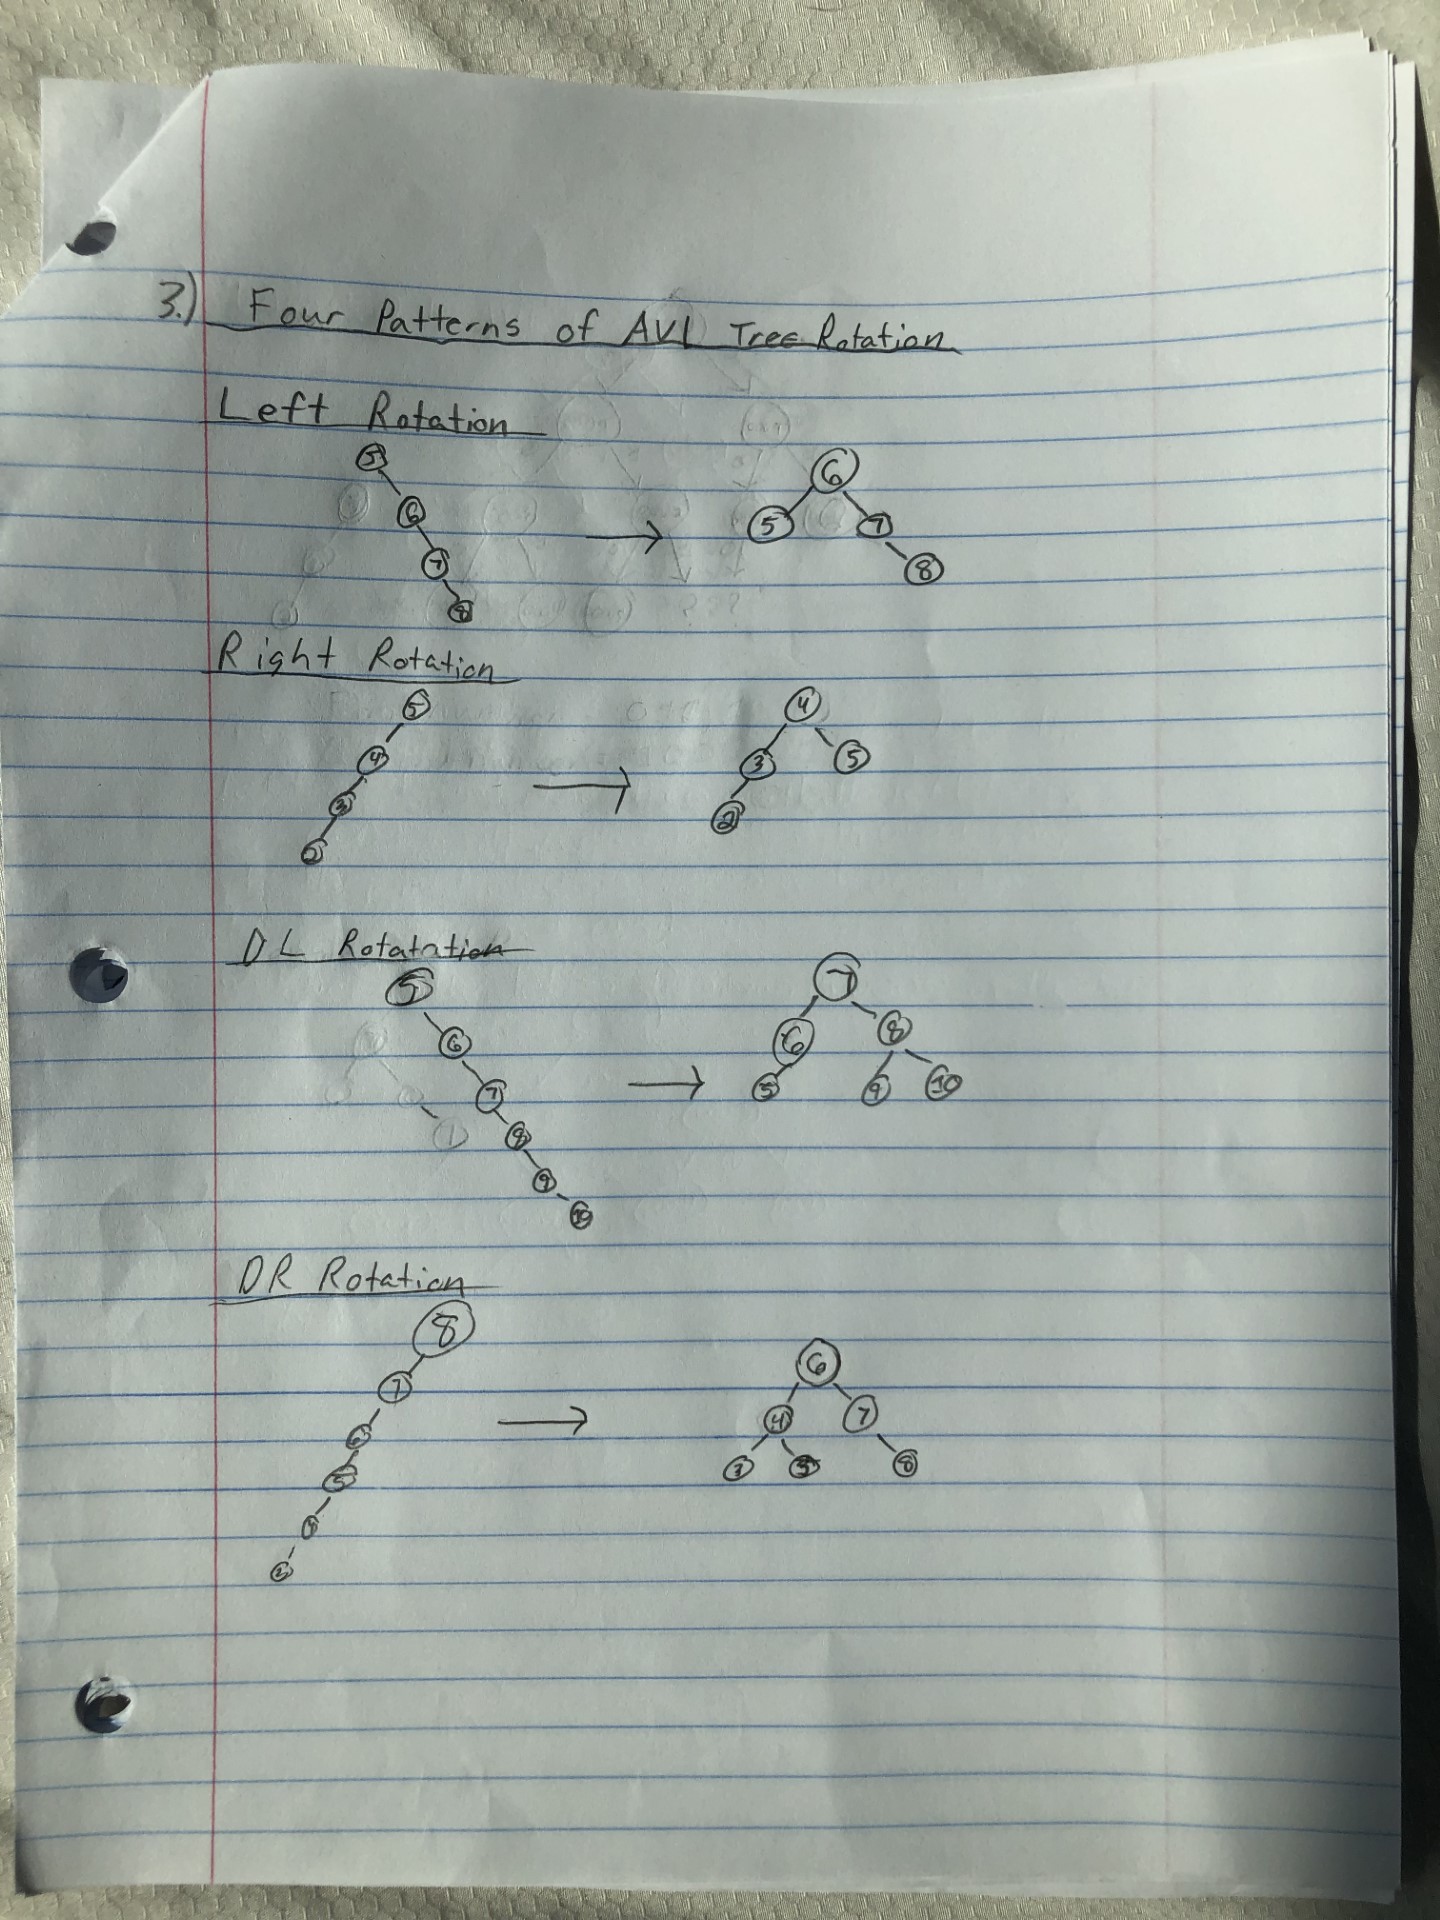 3.) Four Patterns of AVL Tree Rotation
Left Rotation
5
6
6
5
7
7
8
8
Right Rotation
5
4
4
3
5
3
2
2
DL Rotatation
5
7
6
6
8
7
5
9
10
8
9
10
DR Rotation
8
6
7
4
7
6
3
5
8
5